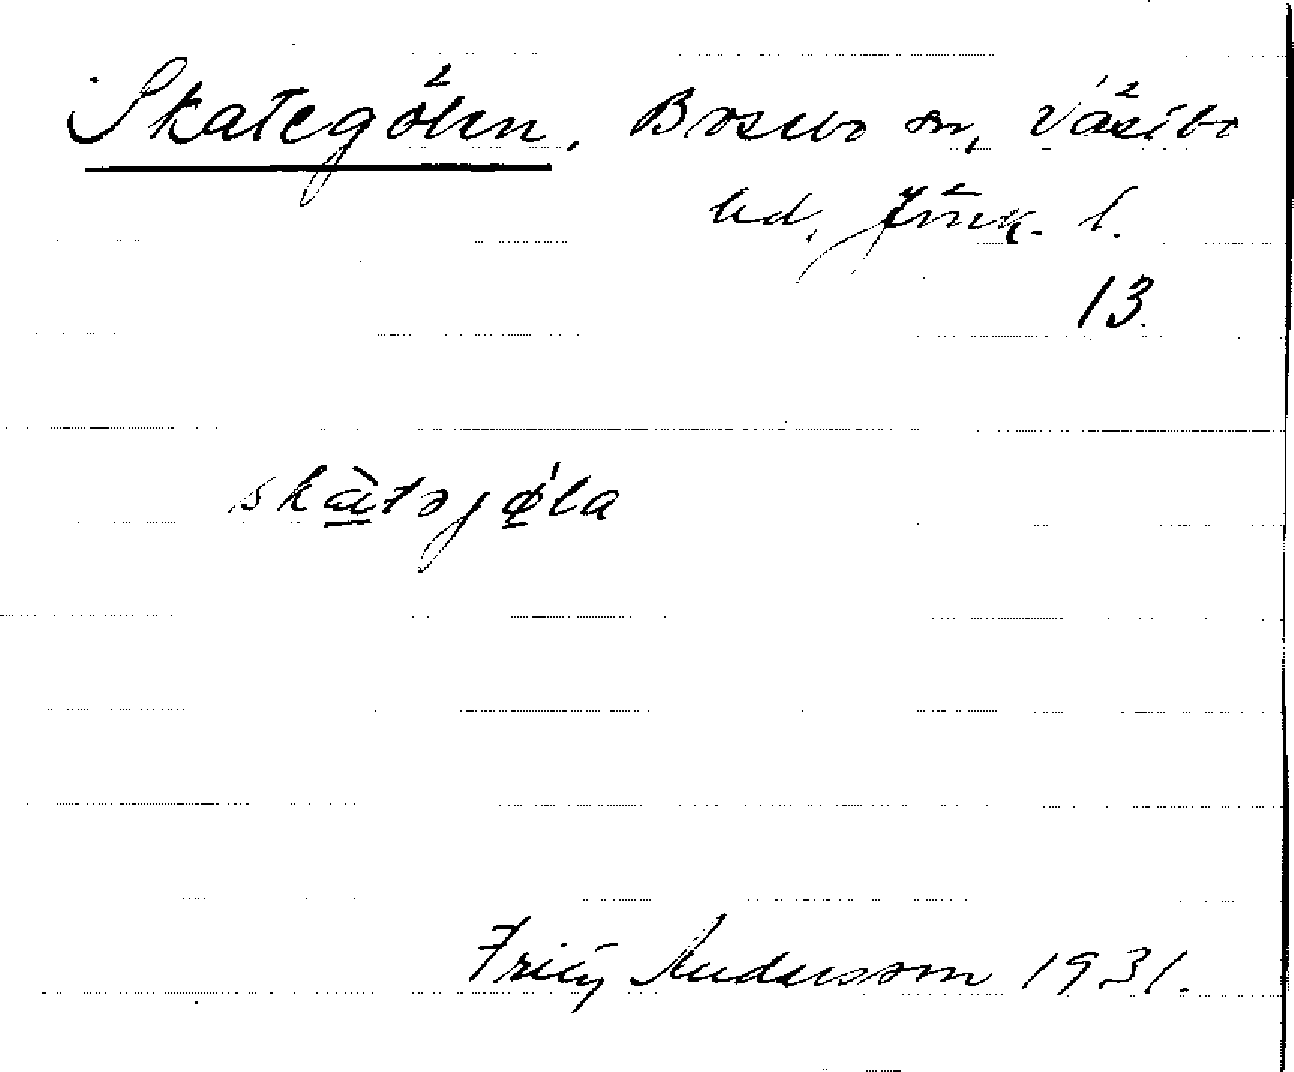 Skategölen, Bosebo sn, Västbo
hd, Jönk. l.
13.
skätəjøla
Fritz Andersson 1931.